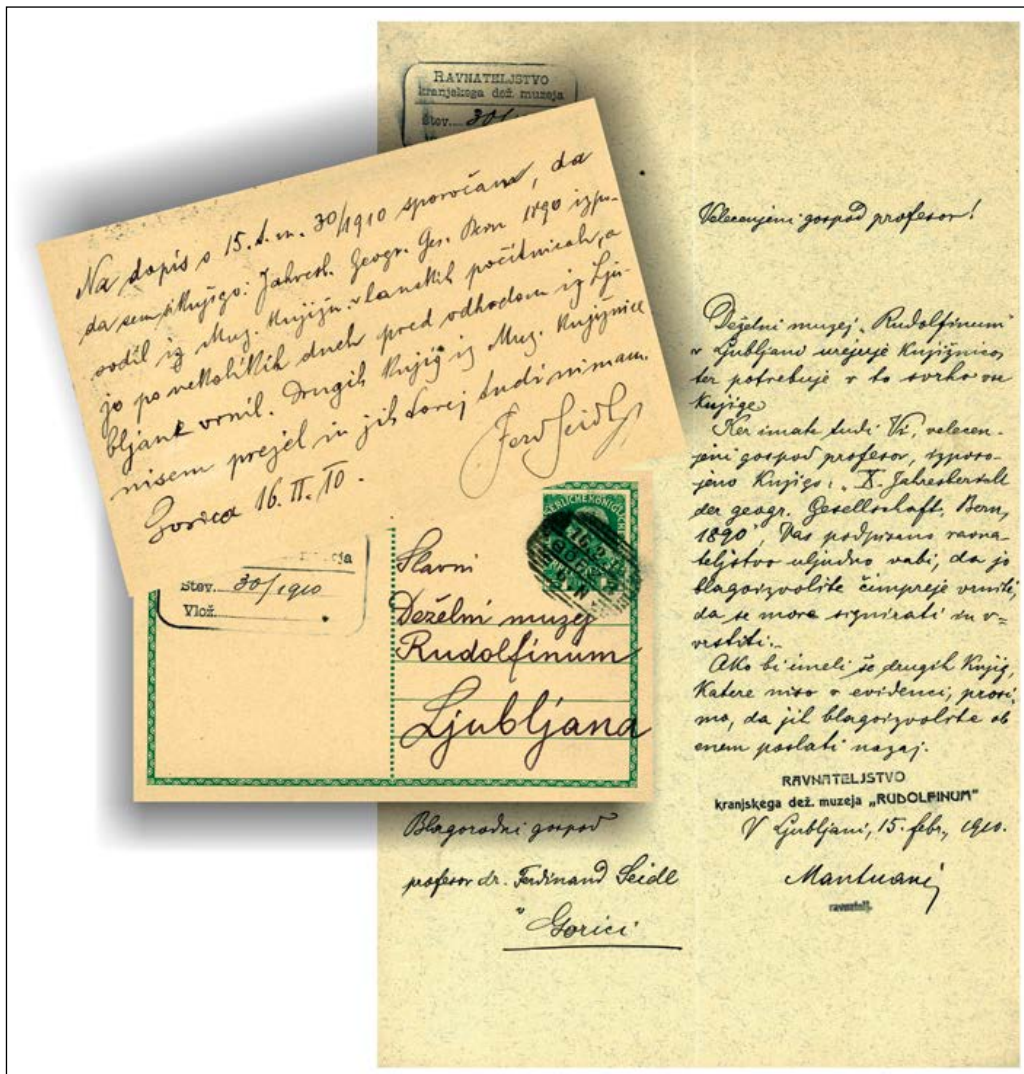 RAVNATELJSTVO
kranjskega dež. muzeja
Štev. 30/
Na dopis s 15. t. m. 30/1910 sporočam, da
da sem knjigo: Jahresb. Geogr. Ges. Bern 1890 izpo-
sodil iz Muz. knjižn. v lanskih počitnicah, a
jo po nekolikih dneh pred odhodom iz Lju-
bljane vrnil. Drugih knjig iz Muz. knjižnice
nisem prejel in jih torej tudi nimam.
Gorica 16. II. 10.
Ferd Seidl
Štev. 30/1910
Vlož.
Slavni
Deželni muzej
Rudolfinum
Ljubljana
Velecenjeni gospod profesor!
Deželni muzej „Rudolfinum“
v Ljubljani urejuje knjižnico,
ter potrebuje v to svrho vse
knjige.
Ker imate tudi Vi, velecen-
jeni gospod profesor, izposo-
jeno knjigo: „X. Jahresbericht
der geogr. Gesellschaft, Bern,
1890“, Vas podpisano ravna-
teljstvo uljudno vabi, da jo
blagoizvolite čimpreje vrniti,
da se more signirati in v-
vrstiti.
Ako bi imeli še drugih knjig,
katere niso v evidenci, prosi-
mo, da jih blagoizvolite ob
enem poslati nazaj.
RAVNATELJSTVO
kranjskega dež. muzeja „RUDOLFINUM“
V Ljubljani, 15. febr., 1910.
Mantuani
ravnatelj.
Blagorodni gospod
profesor dr. Ferdinand Seidl
v
Gorici